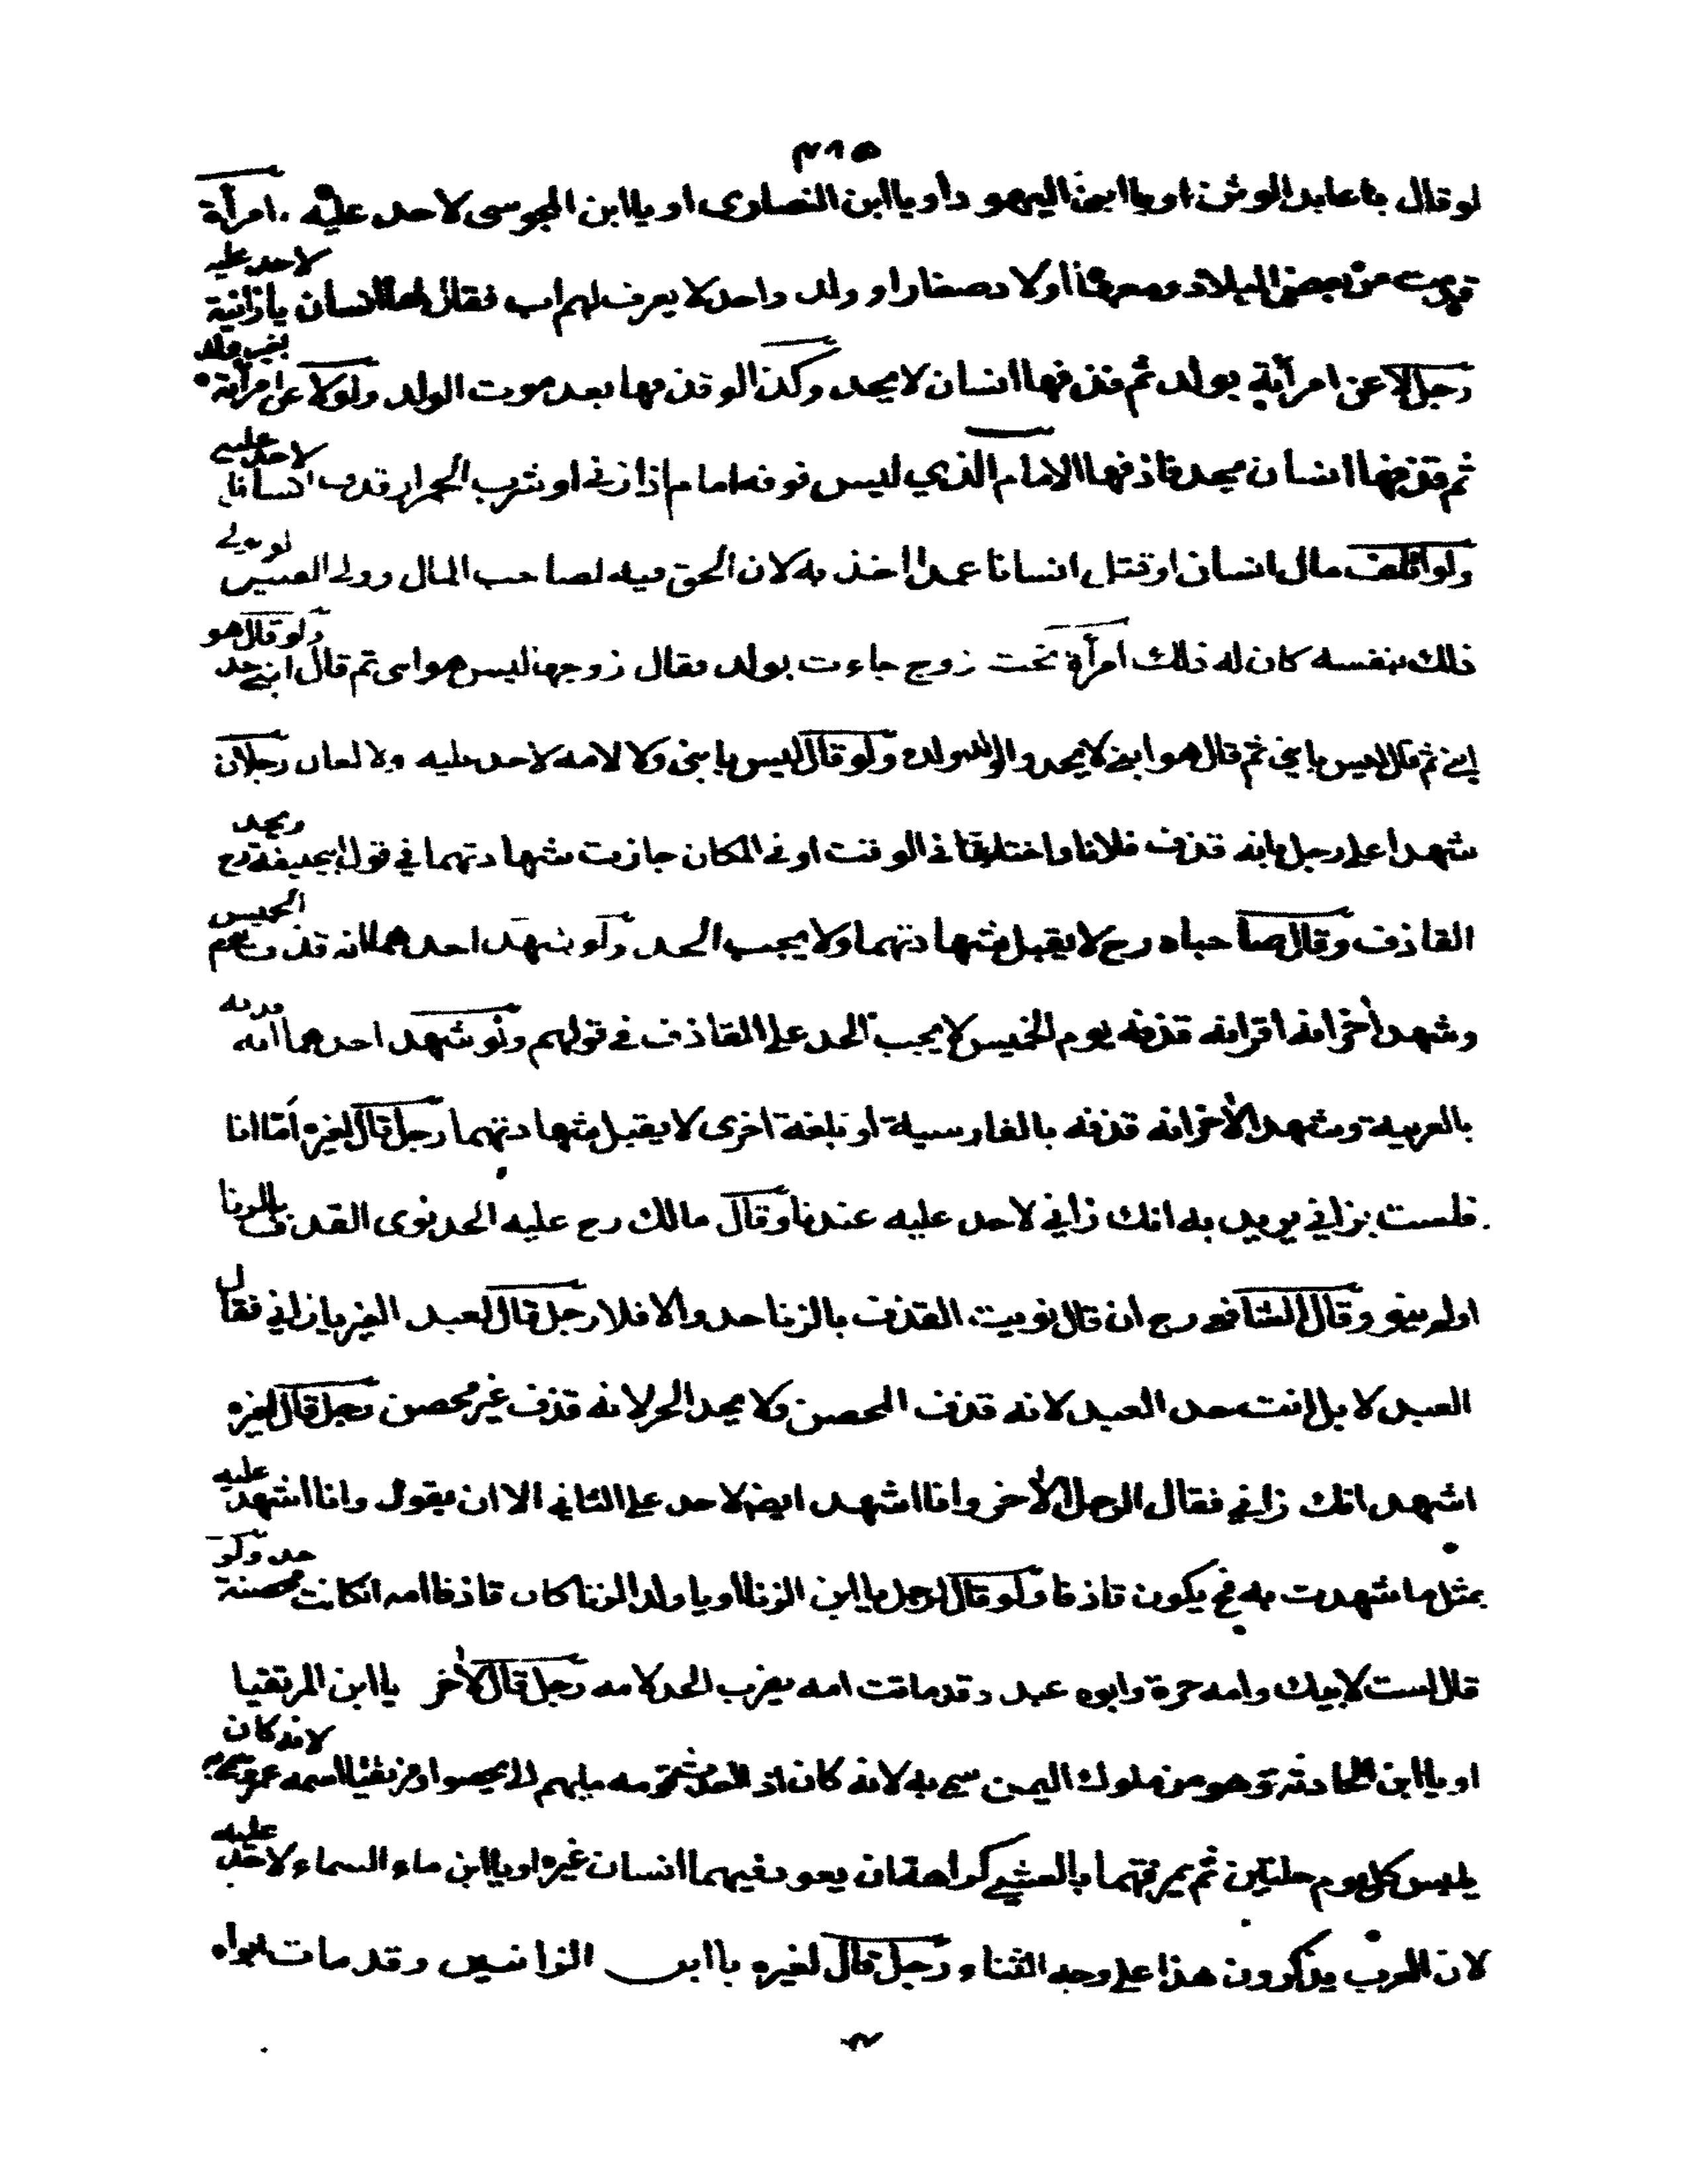 ٣١٥
لو قال يا عابد الوثن او يا ابن اليهود او يا ابن النصارى او يا ابن المجوسى لا حد عليه . امرأة
قدمت من بعض البلاد ومعها اولاد صغار او ولد واحد لا يعرف لهم اب فقال لها انسان يا زانية لا حد عليه
رجل لاعن امرأته بولد ثم قذفها انسان لا يحد وكذا لو قذفها بعد موت الولد ولو لاعن امرأته بغير ولد
ثم قذفها انسان يحد قاذفها الامام الذي ليس فوقه امام اذا زنى او شرب الخمر او قذف انسانا لا حد عليه
ولو اتلف مال انسان او قتل انسانا عمدا اخذ به لان الحق فيه لصاحب المال وولى القتيل
ذلك بنفسه كان له ذلك امرأة تحت زوج جاءت بولد فقال زوجها ليس هو ابنى ثم قال ابنى حد ولو قال هو
ابنى ثم قال ليس بابني ثم قال هو ابني لا يحد والولد ولده ولو قال ليس بابنى ولا لامه لا حد عليه ولا لعان رجلان
شهدا على رجل بانه قذف فلانا واختلفا فى الوقت او فى المكان جازت شهادتهما في قول ابيحنيفة رح ويحد
القاذف وقال صاحباه رح لا يقبل شهادتهما ولا يجب الحد ولو شهد احدهما انه قذف يوم الخميس
وشهد أخر انه اقر انه قذفه يوم الخميس لا يجب الحد على القاذف في قولهم ولو شهد احدهما انه قذفه
بالعربية وشهد الأخر انه قذفه بالفارسية او بلغة اخرى لا يقبل شهادتهما رجل قال لغيره امّا انا
فلست بزاني يريد به انك زاني لا حد عليه عندنا وقال مالك رح عليه الحد نوى القذف بالزنا
اولم ينو وقال الشافعى رح ان قال نويت القذف بالزنا حد والا فلا رجل قال لعبد الغير يا زاني فقال
العبد لا بل انت حد العبد لانه قذف المحصن ولا يحد الحر لانه قذف غير محصن رجل قال لغيره
اشهد انك زاني فقال الرجل الأخر وانا اشهد ايضا لا حد على الثاني الا ان يقول وانا اشهد عليه
بمثل ما شهدت به فح يكون قاذفا ولو قال لرجل يا ابن الزنا او يا ولد الزنا كان قاذفا امه انكانت محصنة حد ولو
قال لست لابيك وامه حرة وابوه عبد وقد ماتت امه يضرب الحد لامه رجل قال لأخر يا ابن المزيقيا
او يا ابن وهو من ملوك اليمن سمى به لانه كان لانه كان
يلبس كل يوم حلتين ثم يمزقهما بالعشي كراهة ان يعود فيهما انسان غيره او يا ابن ماء السماء لا حد عليه
لان العرب يذكرون هذا على وجه الثناء رجل قال لغيره يا ابن الزانيين وقد مات ابواه